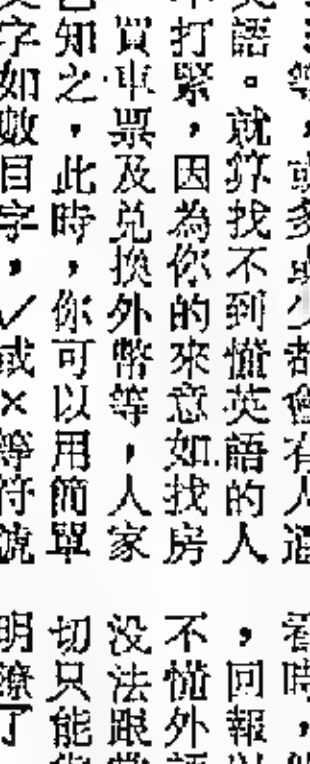 等，或多或少都會有人通
語。就算找不到懂英語的人
打緊，因為你的來意如找房
買車票及兌換外幣等，人家
知之，此時，你可以用簡單
字如數目字，✓或×等符號
看時，
，回報
不懂外
没法跟
切只能
明瞭了